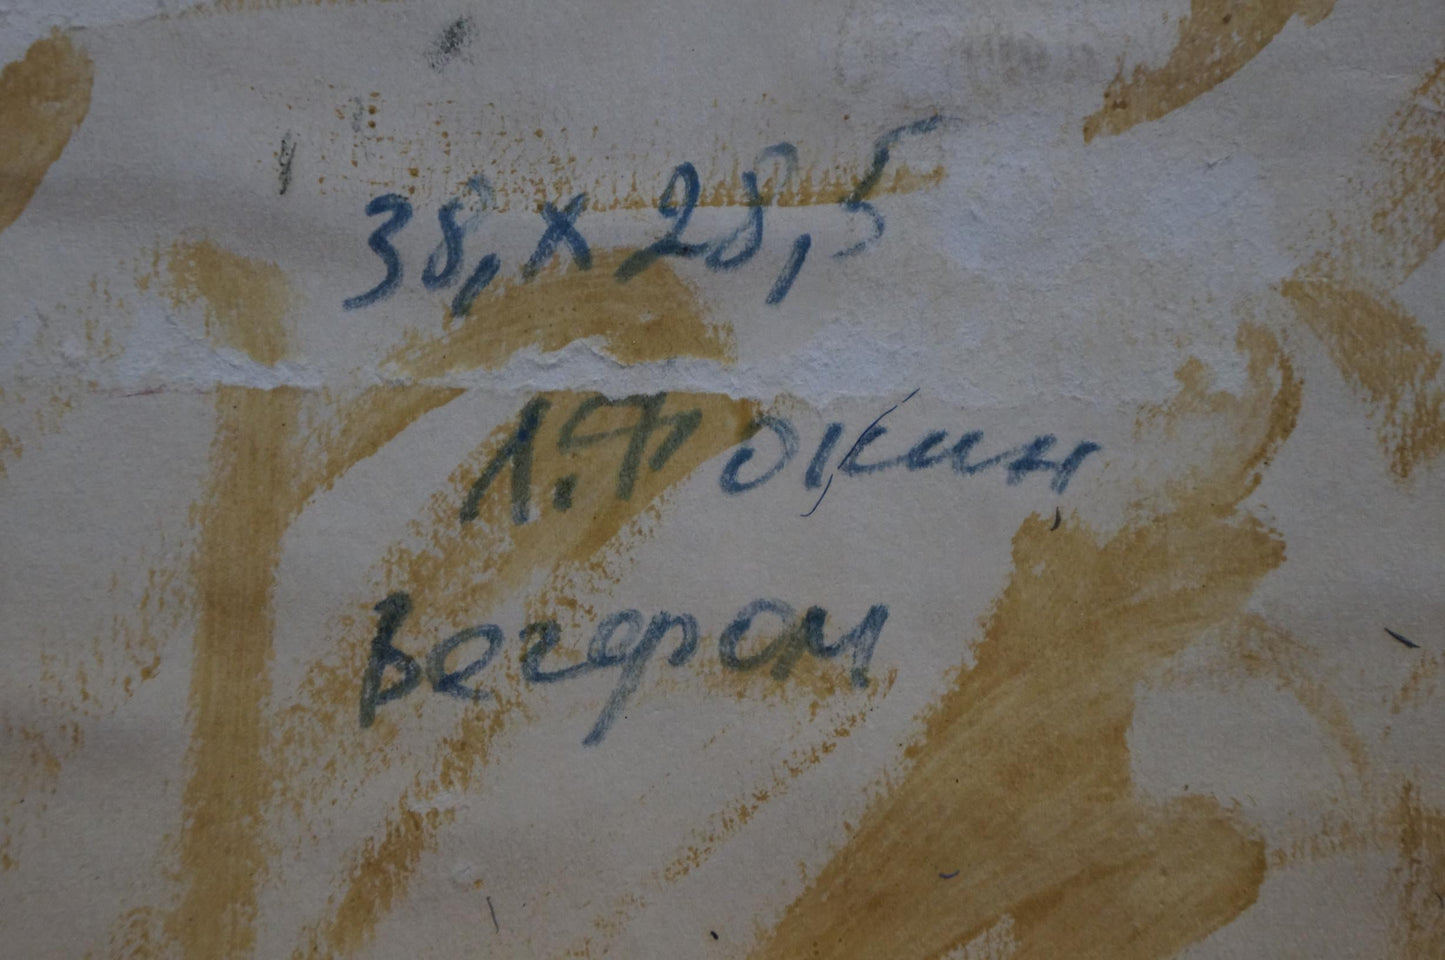 38, х 28,5
Л. Фокин
Вечером